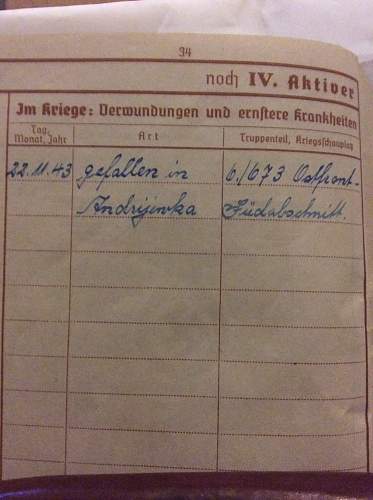 34
noch IV. Aktiver
Im Kriege: Verwundungen und ernstere Krankheiten
Tag, Monat, Jahr Art Truppenteil, Kriegsschauplatz
22.11.43 gefallen in 6./673 Ostfront-
Andrijewka Südabschnitt.